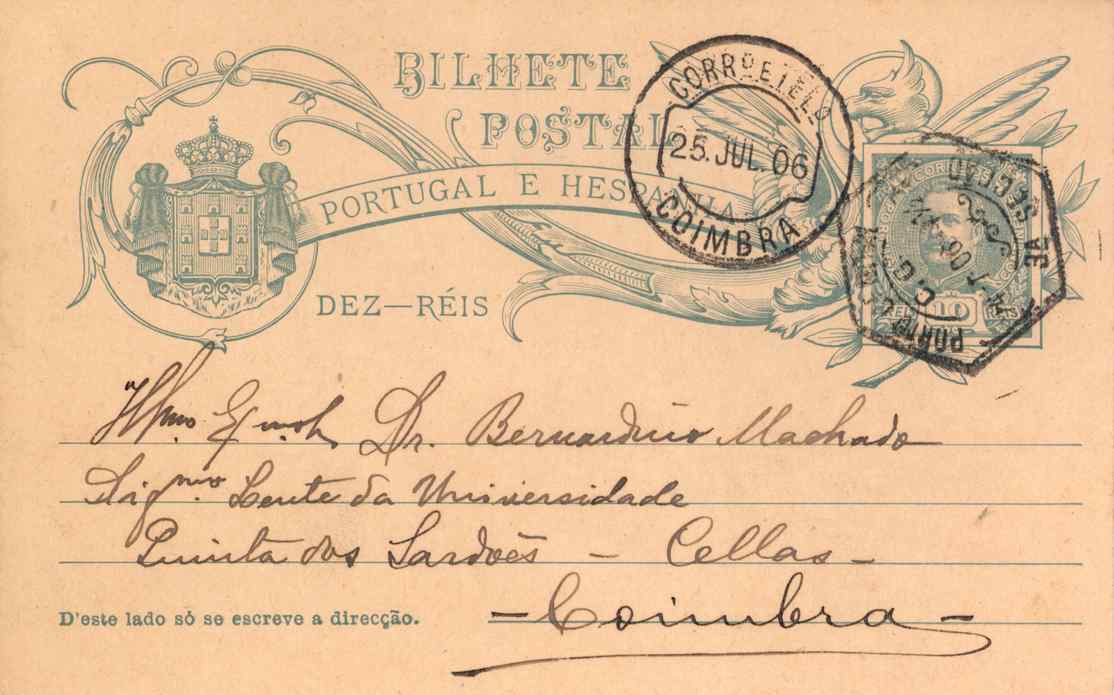 BILHETE
POSTAL
PORTUGAL E HESPANHA
DEZ—RÉIS
CORREIO E TEL
25. JUL. 06
COIMBRA
CORREIOS
10
REIS
2ª SECÇÃO
PORTO
Illmo. Exmo. Sr. Dr. Bernardino Machado
Digmo. Lente da Universidade
Quinta dos Sardões – Cellas –
– Coimbra –
D'este lado só se escreve a direcção.